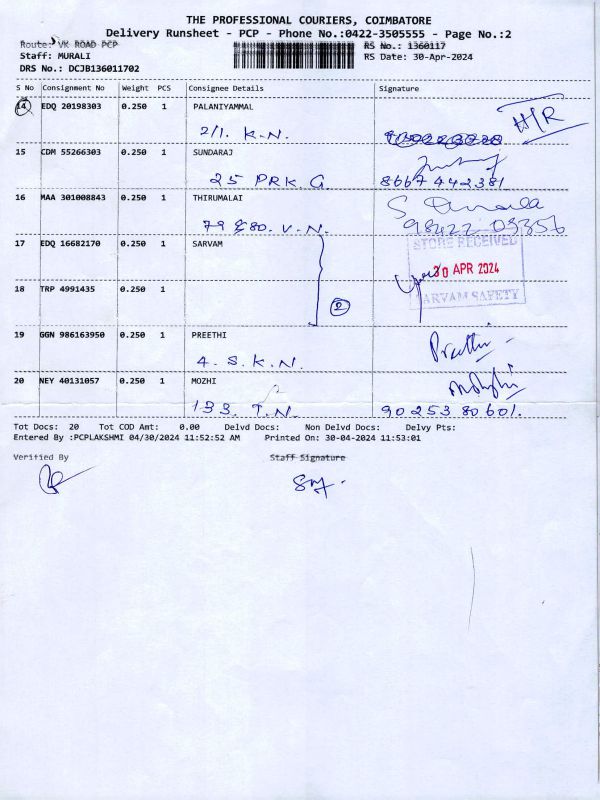 THE PROFESSIONAL COURIERS, COIMBATORE
Delivery Runsheet - PCP - Phone No.:0422-3505555 - Page No.:2
Route: VK ROAD PCP RS No.: 1360117
Staff: MURALI RS Date: 30-Apr-2024
DRS No.: DCJB136011702
S No Consignment No Weight PCS Consignee Details Signature
14 EDQ 20198303 0.250 1 PALANIYAMMAL
H/R
2/1. K.N.
15 CDM 55266303 0.250 1 SUNDARAJ
25 PRK G 8667442381
16 MAA 301008843 0.250 1 THIRUMALAI
79 &80. V.N. 98422 03356
17 EDQ 16682170 0.250 1 SARVAM STORE RECEIVED
30 APR 2024
18 TRP 4991435 0.250 1 SARVAM SAFETY
2
19 GGN 986163950 0.250 1 PREETHI Preethi
4. S.K.N.
20 NEY 40131057 0.250 1 MOZHI
133. T.N. 9025380601.
Tot Docs: 20 Tot COD Amt: 0.00 Delvd Docs: Non Delvd Docs: Delvy Pts:
Entered By :PCPLAKSHMI 04/30/2024 11:52:52 AM Printed On: 30-04-2024 11:53:01
Verified By Staff Signature